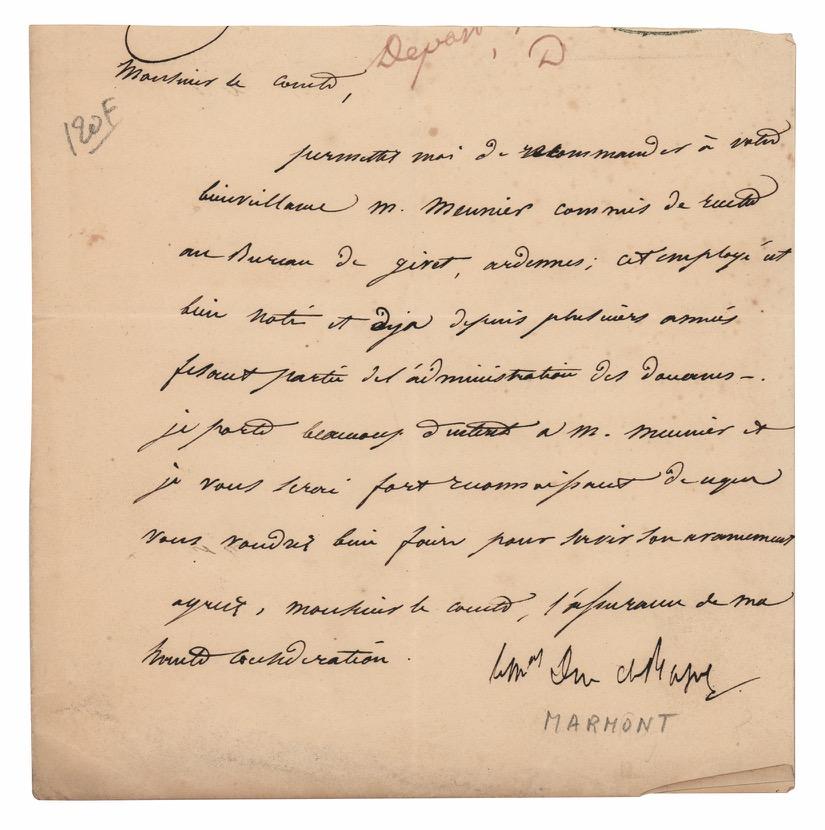 Monsieur le comte,
120F
permettez moi de recommander à votre
bienveillance M. Meunier commis de recette
au Bureau de givet, ardennes; cet employé est
bien noté et deja depuis plusieurs années
fesant partie de l'administration des douanes -.
je porte beaucoup d'interet a M. Meunier et
je vous serai fort reconnaissant de ce que
vous voudrez bien faire pour servir son avancement
agreez, monsieur le comte, l'assurance de ma
haute consideration.
le Mal Duc de Raguse
MARMONT